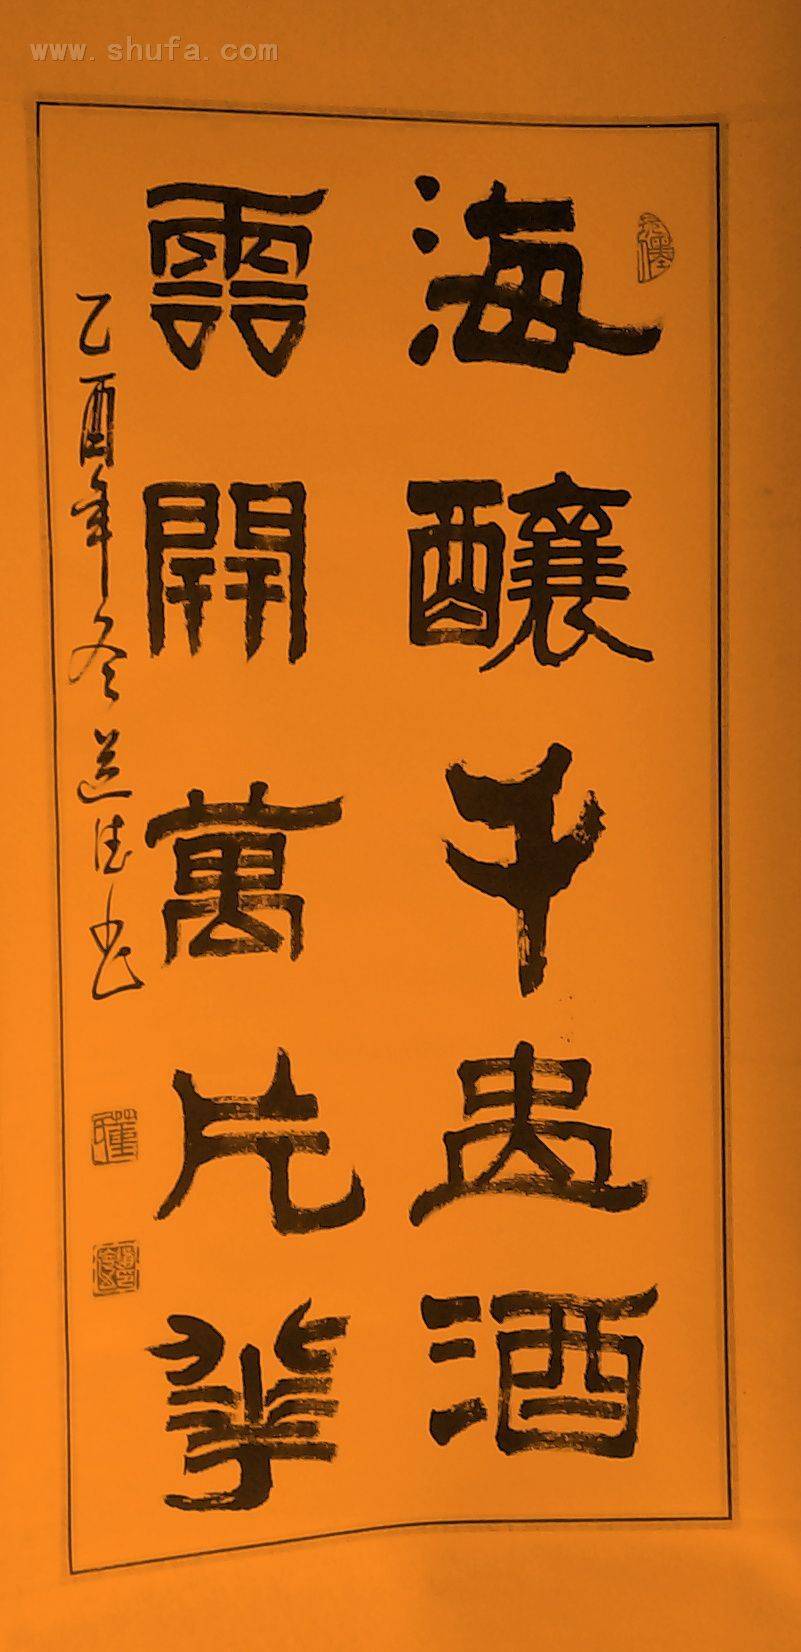 www.shufa.com
海釀千盅酒
霝開萬片華
乙酉年冬道德书